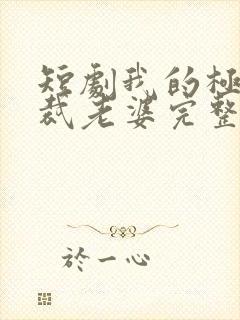 短劇我的極
裁老婆完整
於一心